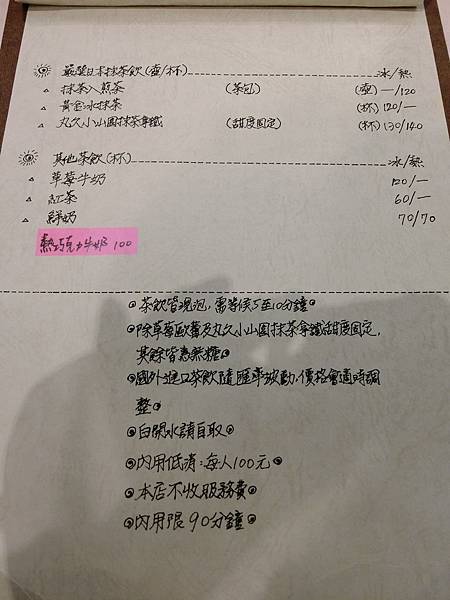 嚴選日本抹茶飲(壺/杯) 冰/熱
抹茶入煎茶 (茶包) (壺) —/120
黃金冰抹茶 (杯) 120/—
丸久小山園抹茶拿鐵 (甜度固定) (杯) 130/140
其他茶飲(杯) 冰/熱
草莓牛奶 120/—
紅茶 60/—
鮮奶 70/70
熱巧克力牛奶 100
茶飲皆現泡,需等候5至10分鐘
除草莓歐蕾及丸久小山園抹茶拿鐵甜度固定,
其餘皆為無糖
國外進口茶飲隨匯率波動,價格會適時調
整
白開水請自取
內用低消:每人100元
本店不收服務費
內用限90分鐘